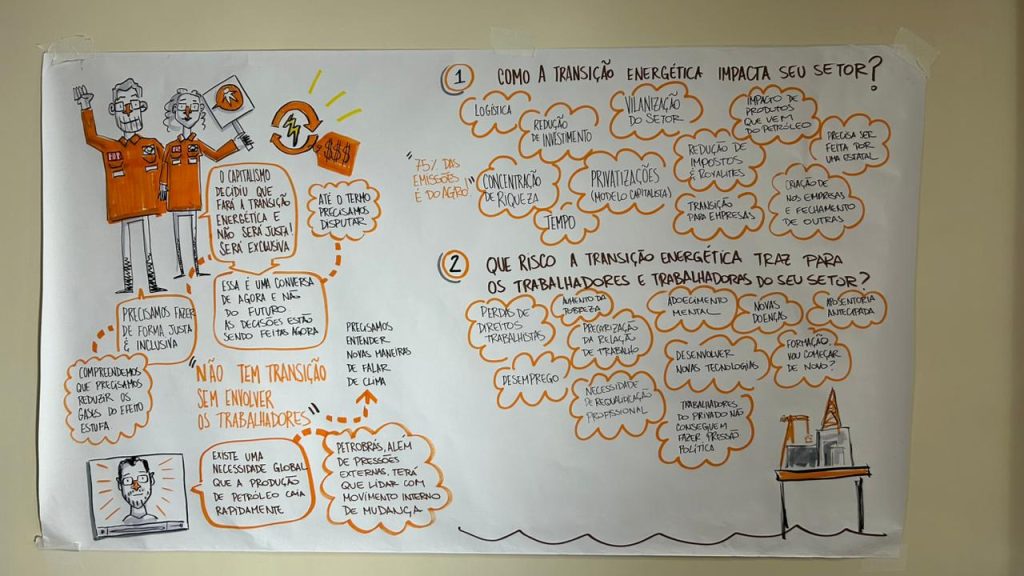 O CAPITALISMO
DECIDIU QUE
FARÁ A TRANSIÇÃO
ENERGÉTICA E
NÃO SERÁ JUSTA!
SERÁ EXCLUSIVA
$$$
ATÉ O TERMO
PRECISAMOS
DISPUTAR
ESSA É UMA CONVERSA
DE AGORA E NÃO
DO FUTURO.
AS DECISÕES ESTÃO
SENDO FEITAS AGORA
PRECISAMOS FAZER
DE FORMA JUSTA
& INCLUSIVA
COMPREENDEMOS
QUE PRECISAMOS
REDUZIR OS
GASES DO EFEITO
ESTUFA
"NÃO TEM TRANSIÇÃO
SEM ENVOLVER
OS TRABALHADORES"
PRECISAMOS
ENTENDER
NOVAS MANEIRAS
DE FALAR
DE CLIMA
EXISTE UMA
NECESSIDADE GLOBAL
QUE A PRODUÇÃO
DE PETRÓLEO CAIA
RAPIDAMENTE
PETROBRÁS, ALÉM
DE PRESSÕES
EXTERNAS, TERÁ
QUE LIDAR COM
MOVIMENTO INTERNO
DE MUDANÇA
1 COMO A TRANSIÇÃO ENERGÉTICA IMPACTA SEU SETOR?
LOGÍSTICA
REDUÇÃO
DE INVESTIMENTO
VILANIZAÇÃO
DO SETOR
IMPACTO DE
PRODUTOS
QUE VEM
DO PETRÓLEO
PRECISA SER
FEITA POR
UMA ESTATAL
"75% DAS
EMISSÕES
É DO AGRO"
CONCENTRAÇÃO
DE RIQUEZA
TEMPO
PRIVATIZAÇÕES
(MODELO CAPITALISTA)
REDUÇÃO DE
IMPOSTOS
& ROYALITES
TRANSIÇÃO
PARA EMPRESAS
CRIAÇÃO DE
NOVAS EMPRESAS
E FECHAMENTO
DE OUTRAS
2 QUE RISCO A TRANSIÇÃO ENERGÉTICA TRAZ PARA
OS TRABALHADORES E TRABALHADORAS DO SEU SETOR?
PERDAS DE
DIREITOS
TRABALHISTAS
AUMENTO DA
POBREZA
PRECARIZAÇÃO
DA RELAÇÃO
DE TRABALHO
ADOECIMENTO
MENTAL
NOVAS
DOENÇAS
APOSENTORIA
ANTECIPADA
DESEMPREGO
NECESSIDADE
DE REQUALIFICAÇÃO
PROFISSIONAL
DESENVOLVER
NOVAS TECNOLOGIAS
FORMAÇÃO:
VOU COMEÇAR
DE NOVO?
TRABALHADORES
DO PRIVADO NÃO
CONSEGUEM
FAZER PRESSÃO
POLÍTICA